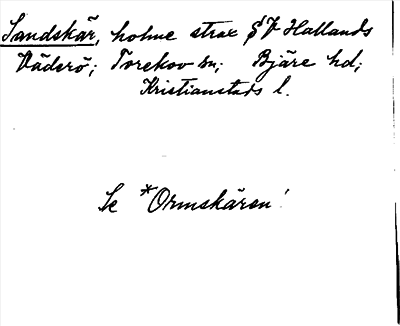 Sandskär, holme strax SV Hallands
Väderö; Torekov sn; Bjäre hd;
Kristianstads l.
Se *Ormskären!